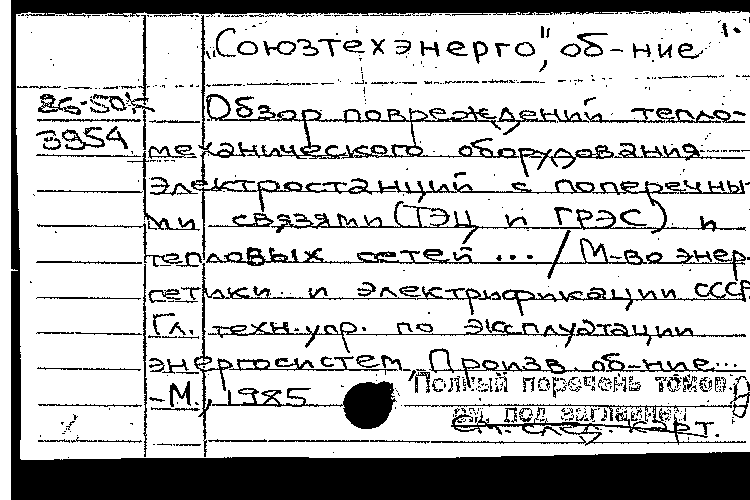 „Союзтехэнерго", об-ние
86-50К Обзор повреждений тепло-
3954
механического оборудования
электростанций с поперечны-
ми связями (ТЭЦ и ГРЭС) и
тепловых сетей ... / М-во энер-
гетики и электрификации СССР
Гл. техн. упр. по эксплуатации
энергосистем, Произв. об-ние...
-М., 1985
Полный перечень томов
см. под заглавием
см. след. карт.